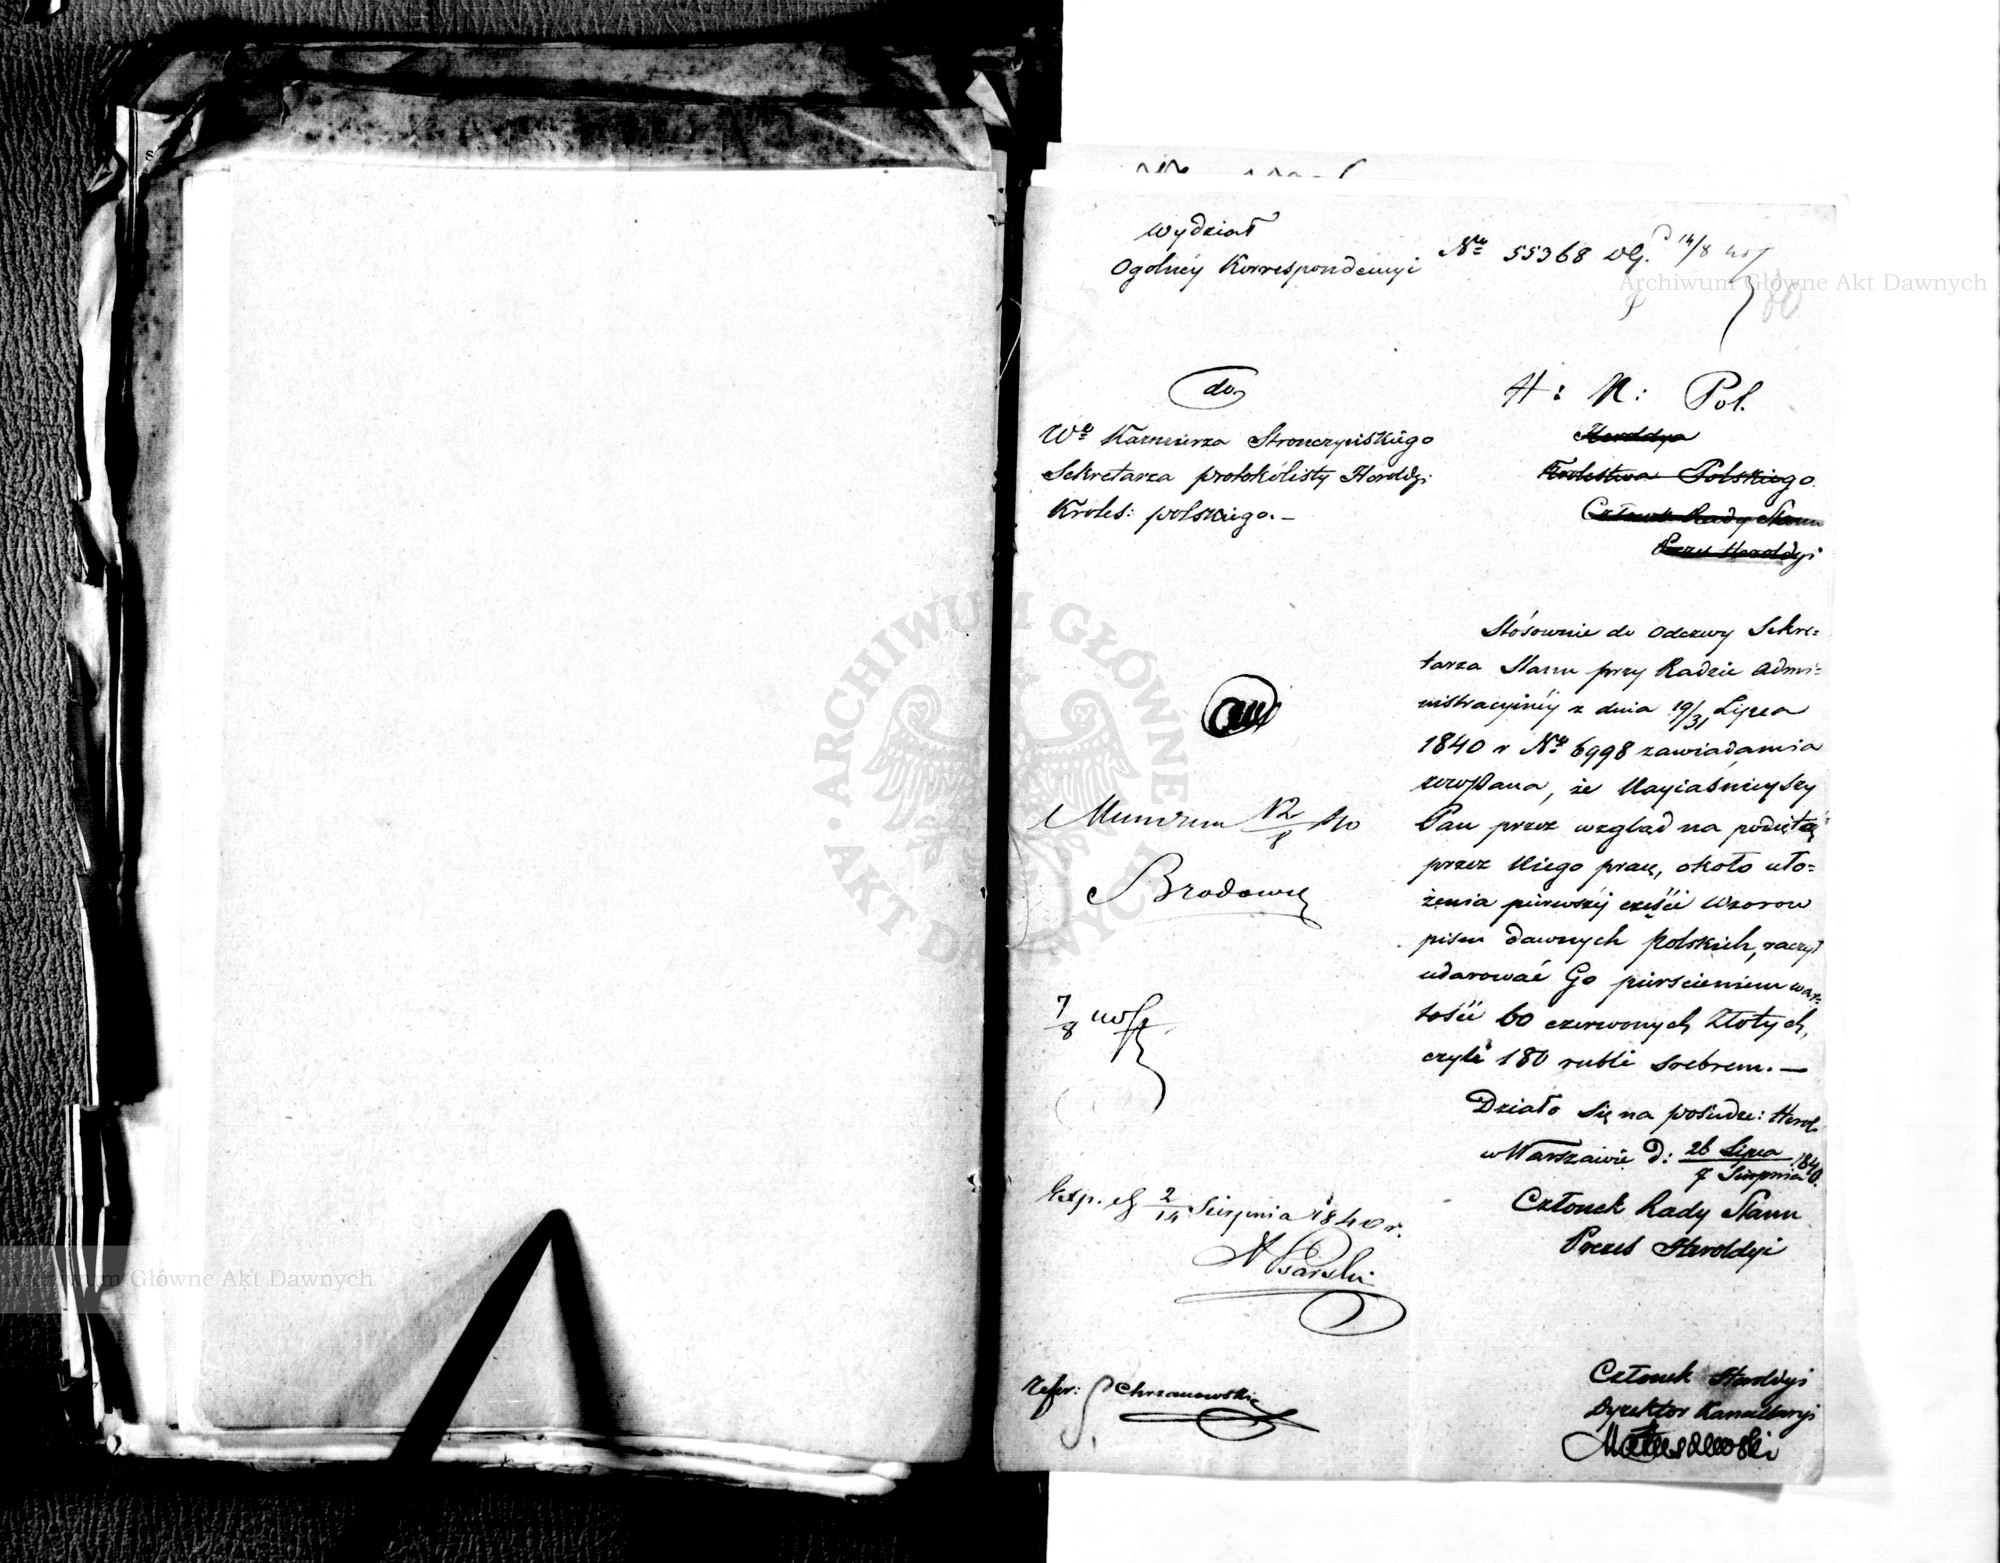 Wydział
Ogolnéy Korrespondencyi
Nr 55368 14/8
60
do
Wo Kazmierza Stronczyńskiego
Sekretarza protokólisty Heroldyi
Króles: polskiego.—
H: K: Pol.
Heroldya
Królestwa Polskiego
Członek Rady Stanu
Prezes Heroldyi
Stósownie do Odezwy Sekre=
tarza Stanu przy Radzie Admi=
nistracyinéy z dnia 19/31 Lipca
1840 r Nr 6998 zawiadamia
że Nayiaśnieyszy
Pan przez wzgląd na podiętą
przez Niego pracę, około uło=
żenia pierwszéj części Wzorow
pism dawnych polskich, raczył
udarować Go pierscieniem war=
tości 60 czerwonych Złotych,
czyli 180 rubli srebrem.—
Działo się na posiedze: Herol.
w Warszawie d: 26 Lipca/7 Sierpnia 1840.
Członek Rady Stanu
Prezes Heroldyi
Członek Heroldyi
Dyrektor Kancellaryi
Matuszewski
Mundum 12/8
7/8
Exp. 2/14 Sierpnia 1840 r.
Psarski
Refer: Chrzanowski
Archiwum Główne Akt Dawnych
Archiwum Główne Akt Dawnych
ARCHIWUM GŁÓWNE AKT DAWNYCH